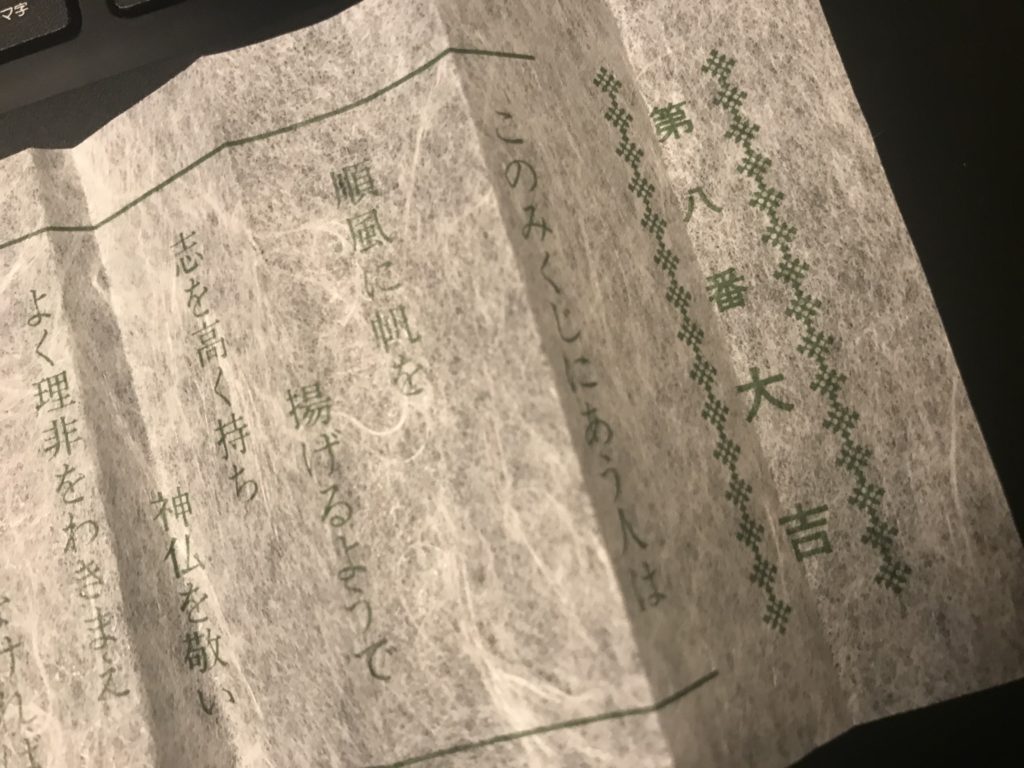 第八番大吉
このみくじにあう人は
順風に帆を
揚げるようで
志を高く持ち
神仏を敬い
よく理非をわきまえ
なければ
マ字